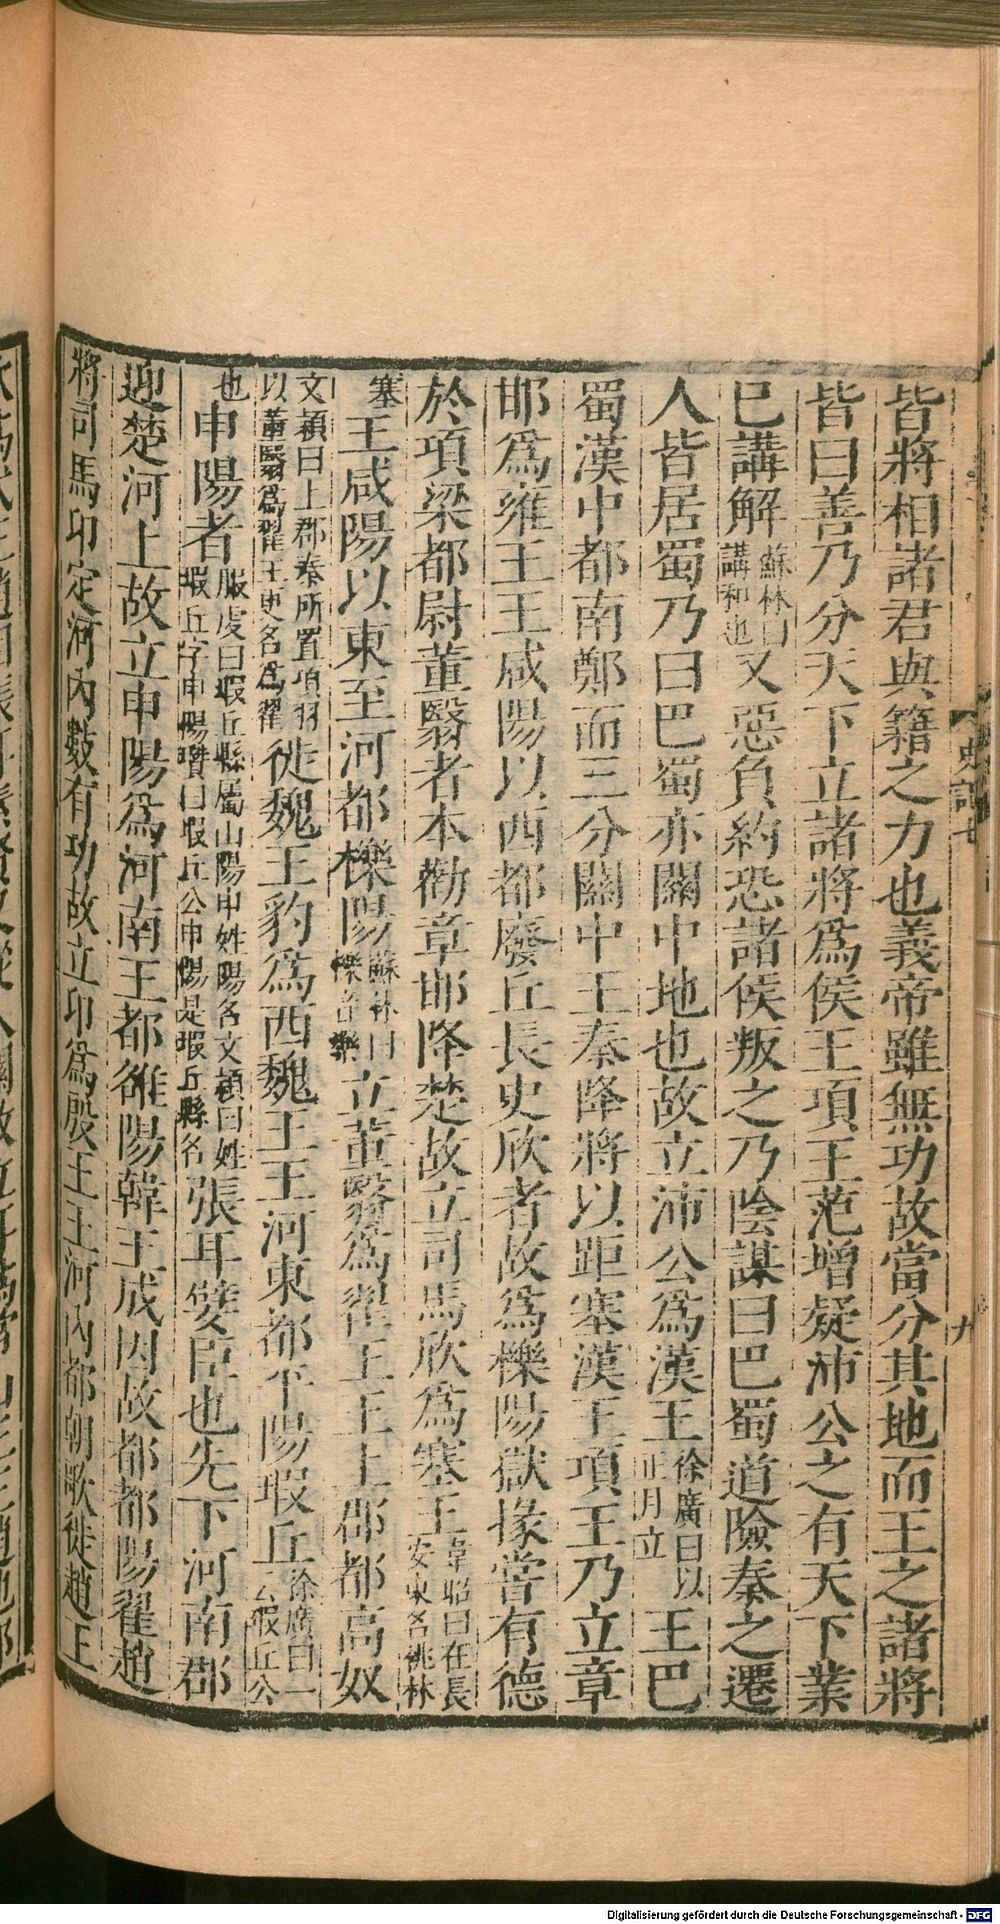 皆將相諸君與籍之力也義帝雖無功故當分其地而王之諸將
皆曰善乃分天下立諸將爲侯王項王范增疑沛公之有天下業
已講解蘇林曰講和也又惡負約恐諸侯叛之乃陰謀曰巴蜀道險秦之遷
人皆居蜀乃曰巴蜀亦關中地也故立沛公爲漢王徐廣曰以正月立王巴
蜀漢中都南鄭而三分關中王秦降將以距塞漢王項王乃立章
邯爲雍王王咸陽以西都廢丘長史欣者故爲櫟陽獄掾嘗有德
於項梁都尉董翳者本勸章邯降楚故立司馬欣爲塞王韋昭曰在長安東名桃林
塞王咸陽以東至河都櫟陽蘇林曰櫟音藥立董翳爲翟王王上郡都高奴
文穎曰上郡秦所置項羽以董翳爲翟王更名爲翟徙魏王豹爲西魏王王河東都平陽瑕丘徐廣曰一云瑕丘公
也申陽者服虔曰瑕丘縣屬山陽申姓陽名文穎曰姓瑕丘字申陽瓚曰瑕丘公申陽是瑕丘縣名張耳嬖臣也先下河南郡
迎楚河上故立申陽爲河南王都雒陽韓王成因故都都陽翟趙
將司馬卬定河內數有功故立卬爲殷王王河內都朝歌徙趙王
史記七
九
Digitalisierung gefördert durch die Deutsche Forschungsgemeinschaft - DFG